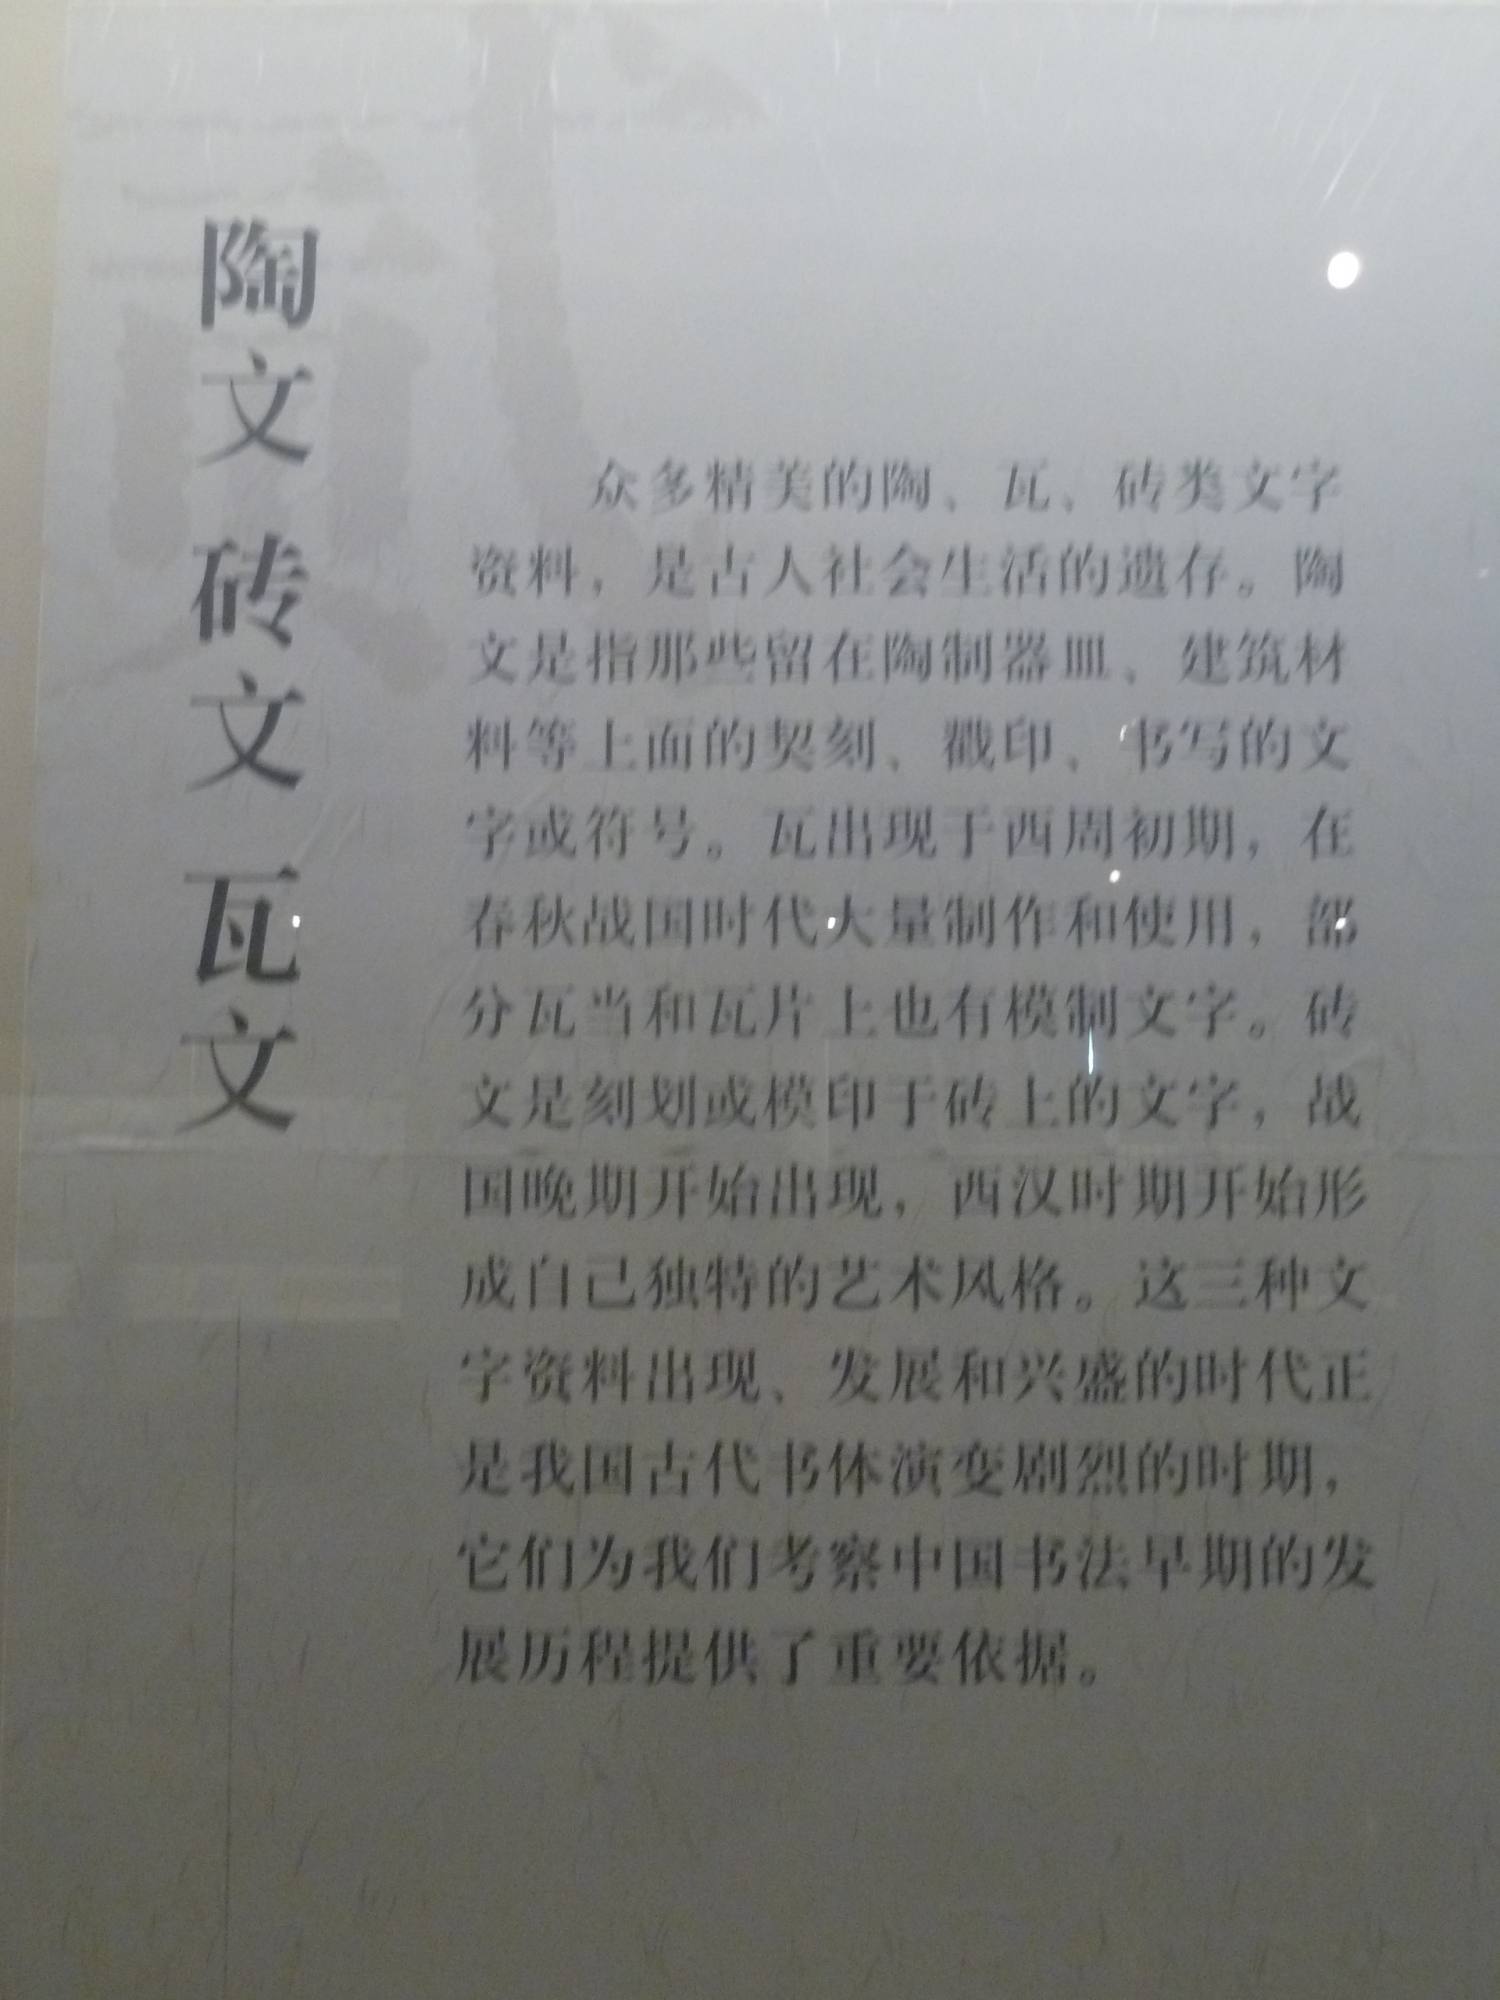 陶文 砖文 瓦文
众多精美的陶、瓦、砖类文字
资料，是古人社会生活的遗存。陶
文是指那些留在陶制器皿、建筑材
料等上面的契刻、戳印、书写的文
字或符号。瓦出现于西周初期，在
春秋战国时代大量制作和使用，部
分瓦当和瓦片上也有模制文字。砖
文是刻划或模印于砖上的文字，战
国晚期开始出现，西汉时期开始形
成自己独特的艺术风格。这三种文
字资料出现、发展和兴盛的时代正
是我国古代书体演变剧烈的时期，
它们为我们考察中国书法早期的发
展历程提供了重要依据。